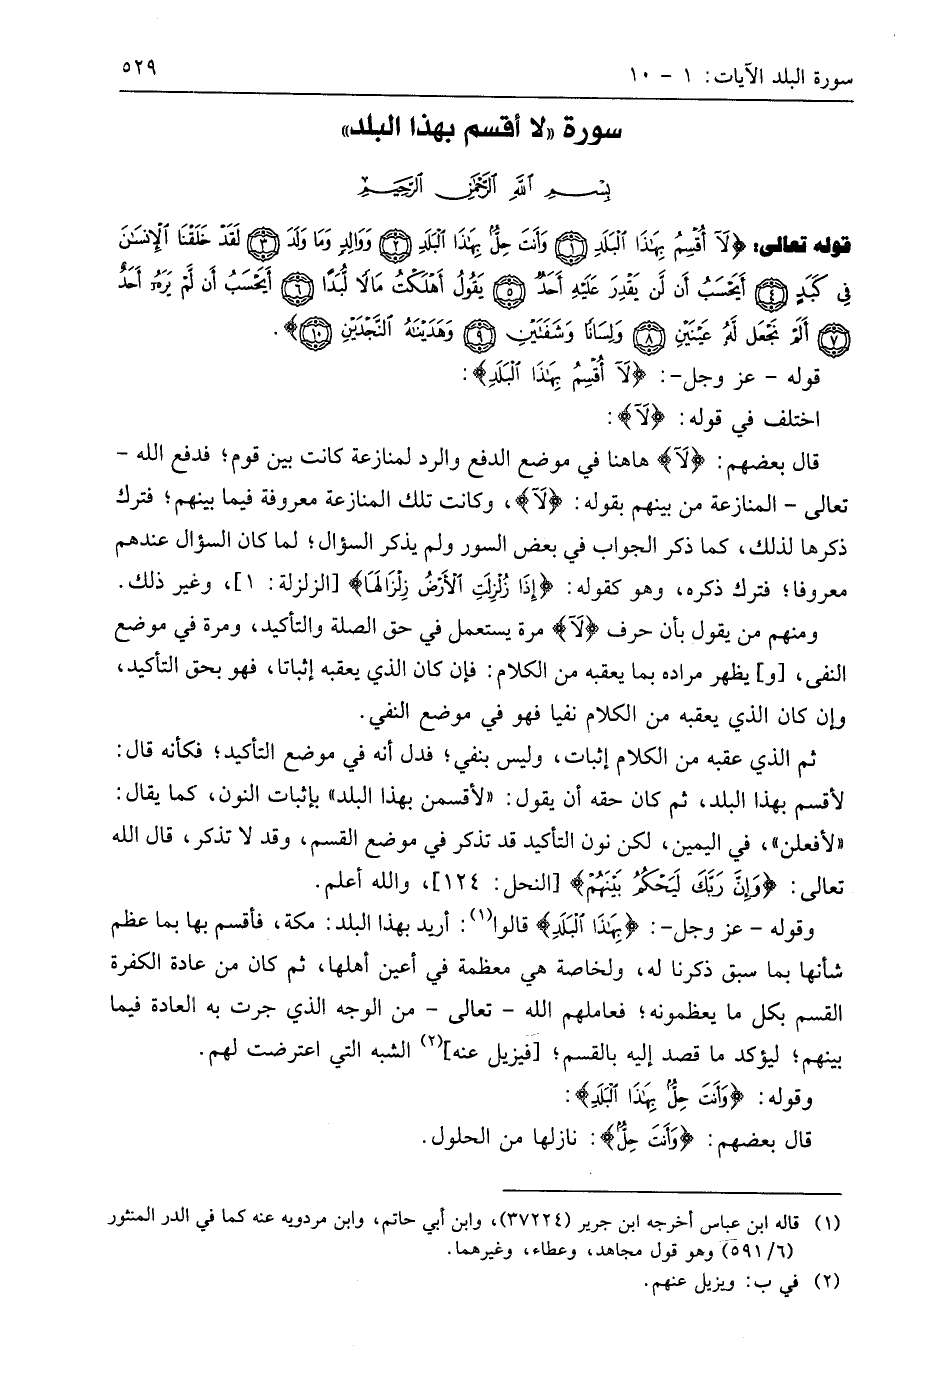 سورة البلد الآيات: ١ - ١٠
٥٢٩
سورة «لا أقسم بهذا البلد»
بِسْمِ اللَّهِ الرَّحْمَٰنِ الرَّحِيمِ
قوله تعالى: ﴿لَآ أُقْسِمُ بِهَٰذَا ٱلْبَلَدِ ١ وَأَنتَ حِلٌّۢ بِهَٰذَا ٱلْبَلَدِ ٢ وَوَالِدٍ وَمَا وَلَدَ ٣ لَقَدْ خَلَقْنَا ٱلْإِنسَٰنَ
فِى كَبَدٍ ٤ أَيَحْسَبُ أَن لَّن يَقْدِرَ عَلَيْهِ أَحَدٌ ٥ يَقُولُ أَهْلَكْتُ مَالًا لُّبَدًا ٦ أَيَحْسَبُ أَن لَّمْ يَرَهُۥٓ أَحَدٌ
٧ أَلَمْ نَجْعَل لَّهُۥ عَيْنَيْنِ ٨ وَلِسَانًا وَشَفَتَيْنِ ٩ وَهَدَيْنَٰهُ ٱلنَّجْدَيْنِ ١٠﴾.
قوله - عز وجل-: ﴿لَآ أُقْسِمُ بِهَٰذَا ٱلْبَلَدِ﴾:
اختلف في قوله: ﴿لَآ﴾:
قال بعضهم: ﴿لَآ﴾ هاهنا في موضع الدفع والرد لمنازعة كانت بين قوم؛ فدفع الله -
تعالى - المنازعة من بينهم بقوله: ﴿لَآ﴾، وكانت تلك المنازعة معروفة فيما بينهم؛ فترك
ذكرها لذلك، كما ذكر الجواب في بعض السور ولم يذكر السؤال؛ لما كان السؤال عندهم
معروفا؛ فترك ذكره، وهو كقوله: ﴿إِذَا زُلْزِلَتِ ٱلْأَرْضُ زِلْزَالَهَا﴾ [الزلزلة: ١]، وغير ذلك.
ومنهم من يقول بأن حرف ﴿لَآ﴾ مرة يستعمل في حق الصلة والتأكيد، ومرة في موضع
النفى، [و] يظهر مراده بما يعقبه من الكلام: فإن كان الذي يعقبه إثباتا، فهو بحق التأكيد،
وإن كان الذي يعقبه من الكلام نفيا فهو في موضع النفي.
ثم الذي عقبه من الكلام إثبات، وليس بنفي؛ فدل أنه في موضع التأكيد؛ فكأنه قال:
لأقسم بهذا البلد، ثم كان حقه أن يقول: «لأقسمن بهذا البلد» بإثبات النون، كما يقال:
«لأفعلن»، في اليمين، لكن نون التأكيد قد تذكر في موضع القسم، وقد لا تذكر، قال الله
تعالى: ﴿وَإِنَّ رَبَّكَ لَيَحْكُمُ بَيْنَهُمْ﴾ [النحل: ١٢٤]، والله أعلم.
وقوله - عز وجل-: ﴿بِهَٰذَا ٱلْبَلَدِ﴾ قالوا(١): أريد بهذا البلد: مكة، فأقسم بها بما عظم
شأنها بما سبق ذكرنا له، ولخاصة هي معظمة في أعين أهلها، ثم كان من عادة الكفرة
القسم بكل ما يعظمونه؛ فعاملهم الله - تعالى - من الوجه الذي جرت به العادة فيما
بينهم؛ ليؤكد ما قصد إليه بالقسم؛ [فيزيل عنه](٢) الشبه التي اعترضت لهم.
وقوله: ﴿وَأَنتَ حِلٌّۢ بِهَٰذَا ٱلْبَلَدِ﴾:
قال بعضهم: ﴿وَأَنتَ حِلٌّۢ﴾: نازلها من الحلول.
(١) قاله ابن عباس أخرجه ابن جرير (٣٧٢٢٤)، وابن أبي حاتم، وابن مردويه عنه كما في الدر المنثور
(٥٩١/٦) وهو قول مجاهد، وعطاء، وغيرهما.
(٢) في ب: ويزيل عنهم.